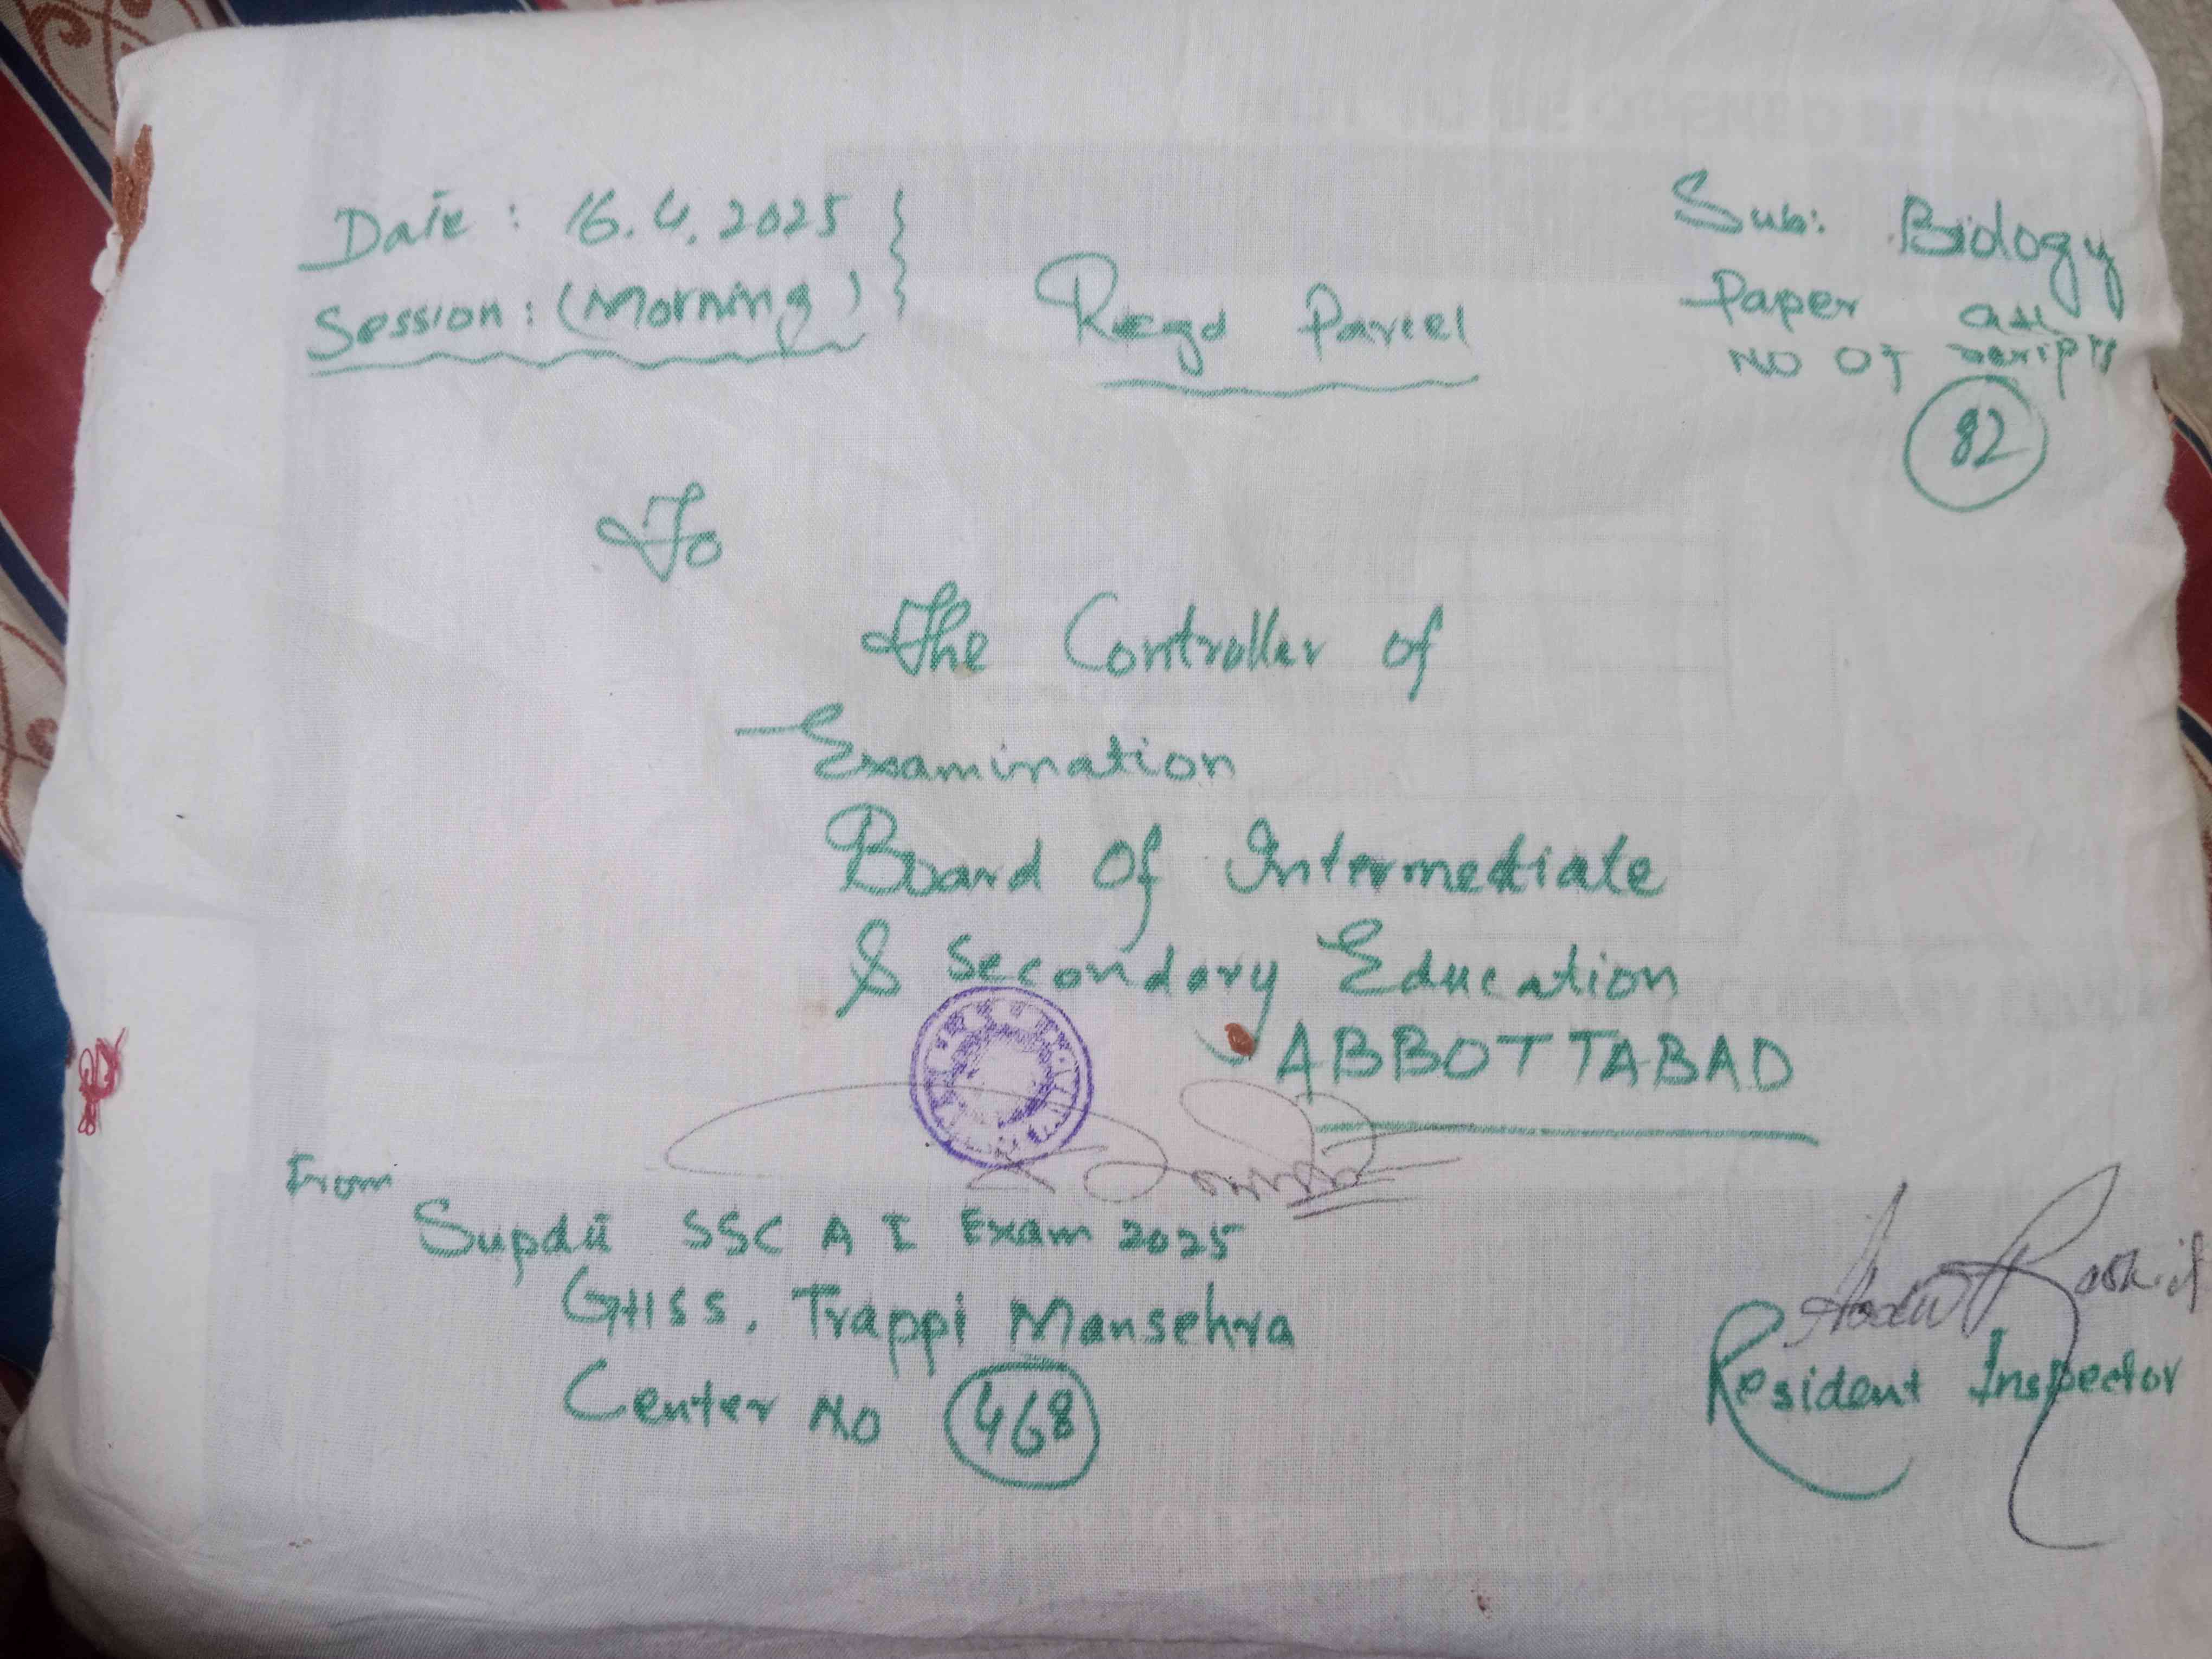 Date : 16.4.2025
Session : (Morning)
Regd Parcel
Sub: Biology
Paper
No of scripts
82
To
The Controller of
Examination
Board Of Intermediate
& Secondary Education
ABBOTTABAD
From
Supdtt SSC A I Exam 2025
GHSS. Trappi Mansehra
Center No 468
Resident Inspector